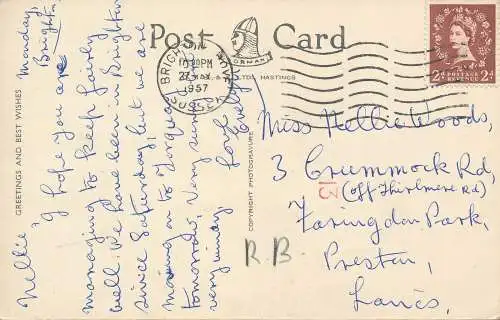 Post Card
NORMAN
& CO. LTD, HASTINGS
BRIGHTON
10:30PM
27 MAY
1957
SUSSEX
2D POSTAGE REVENUE 2D
GREETINGS AND BEST WISHES
COPYRIGHT PHOTOGRAVURE
Monday,
Brighton.
Nellie, I hope you are
managing to keep fairly
well. We have been in Brighton
since Saturday but we are
moving on to Torquay
tomorrow. Very sunny but
very windy. Love
Evelyn
Miss Nellie Woods,
3 Crummock Rd,
(off Thirlmere Rd)
Faringdon Park,
Preston,
Lancs.
R.B.